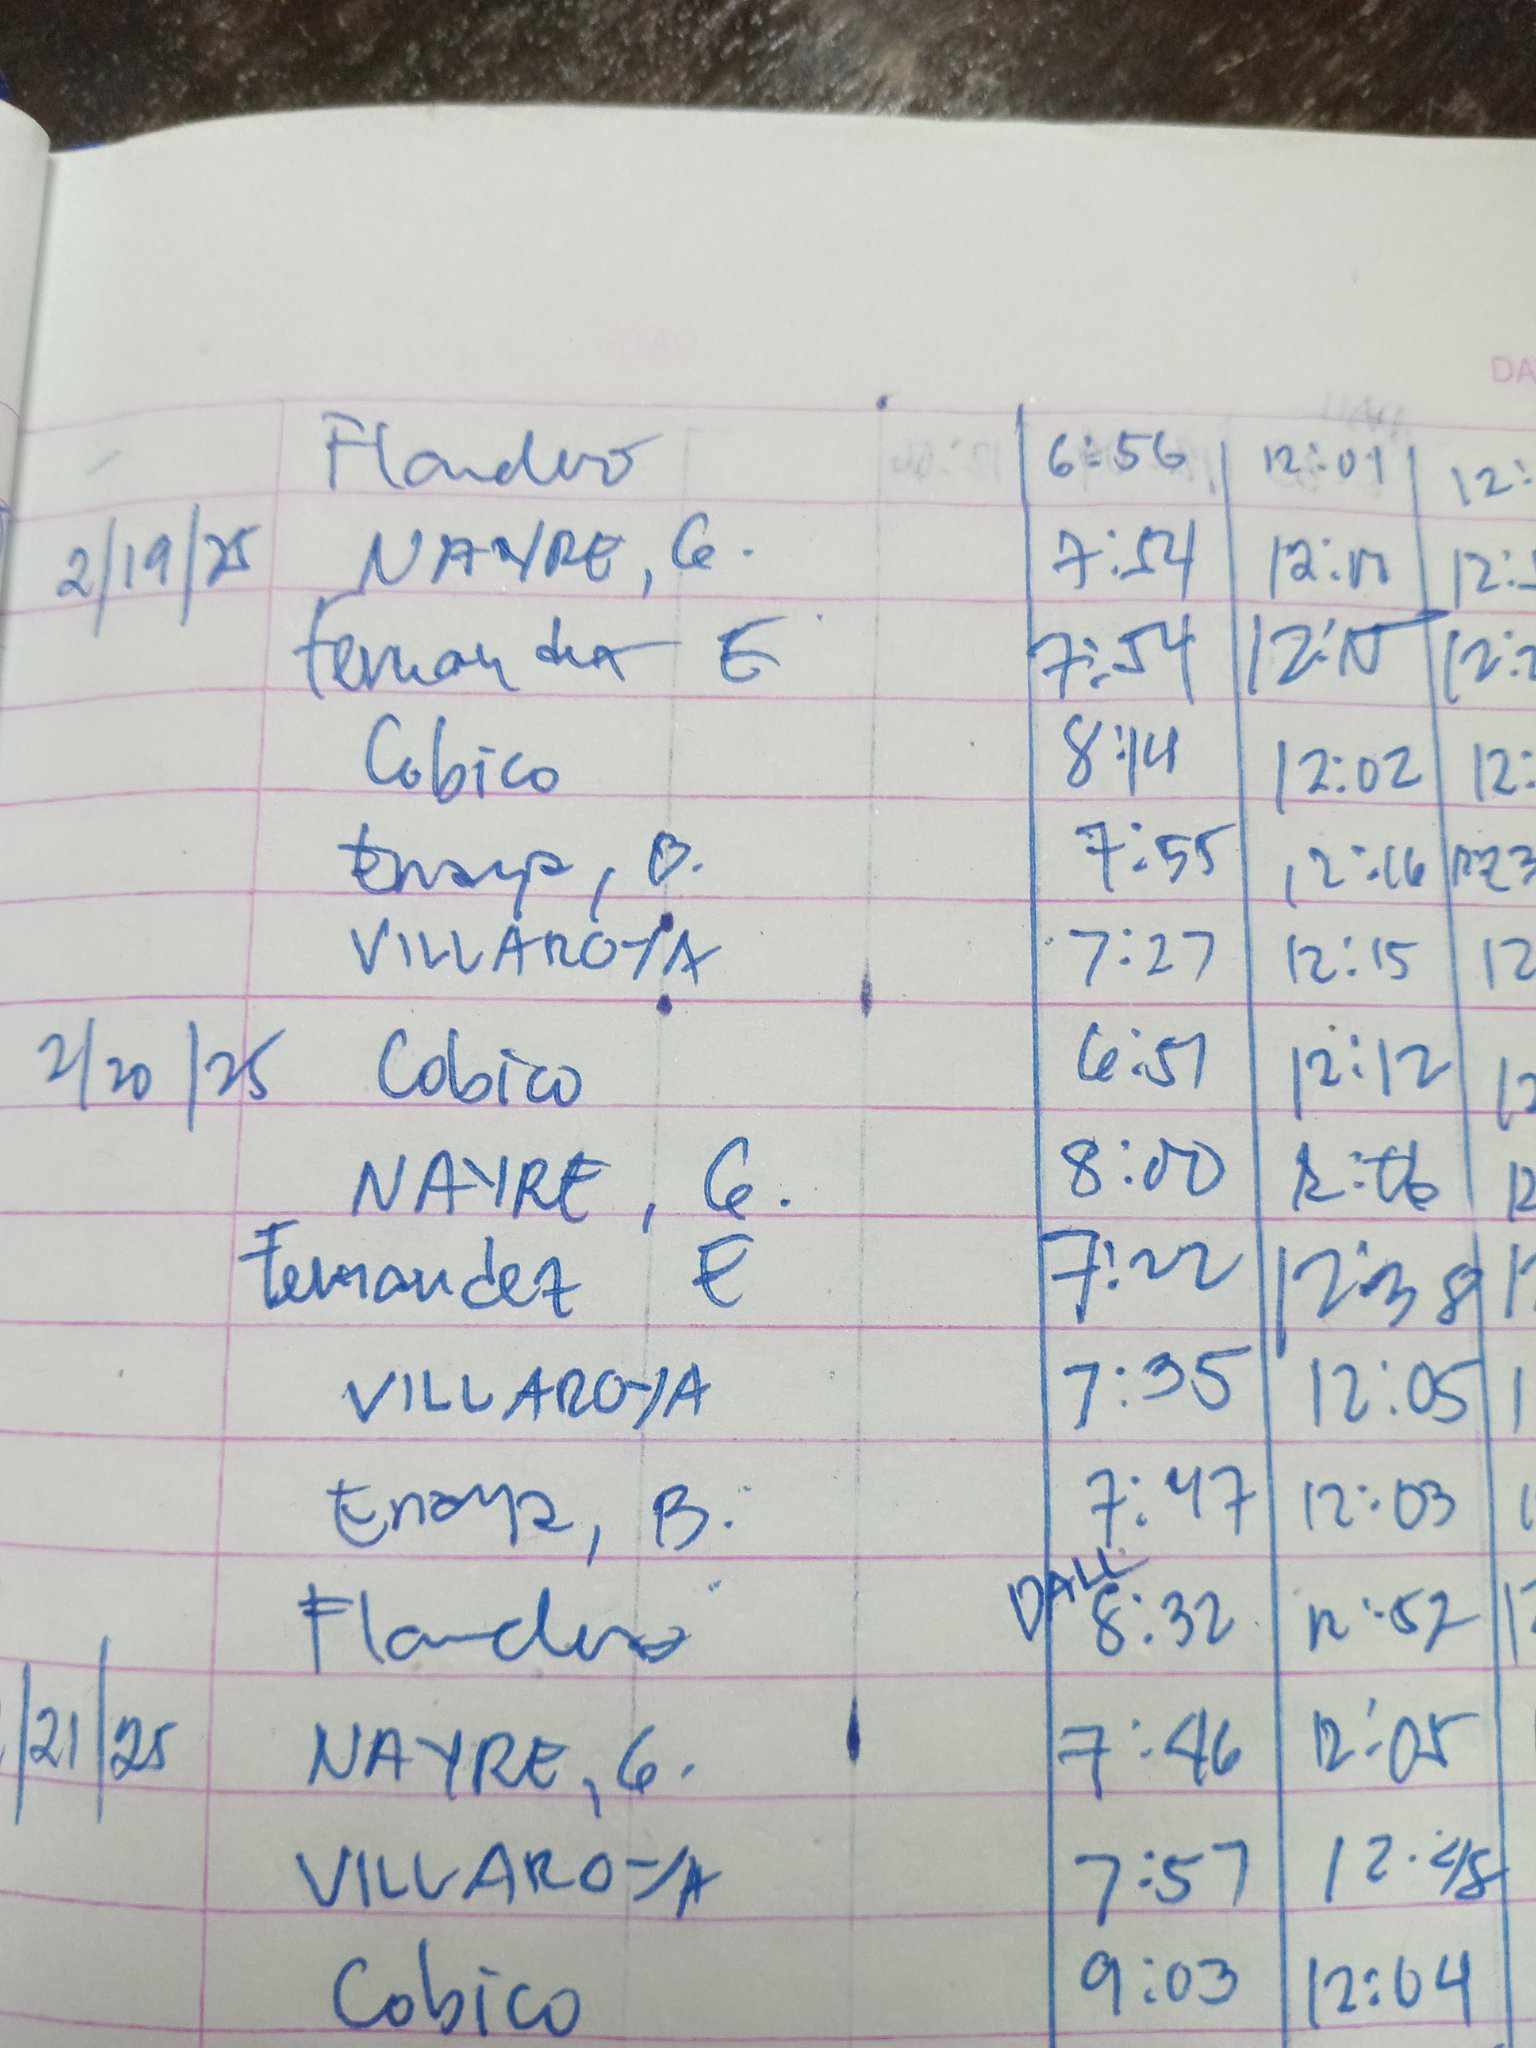 DA
Flandero 6:56 12:01 12:
2/19/25 NAYRE, G. 7:54 12:
Fernandez E 7:54 12:15 12:2
Cobico 8:14 12:02 12:
Enaya, B. 7:55 12:16
VILLAROYA 7:27 12:15 12
2/20/25 Cobico 6:51 12:12 12
NAYRE, G. 8:00 12:06 12
Fernandez E 7:22 12:38
VILLAROYA 7:35 12:05 1
Enaya, B. 7:47 12:03
DALL
Flandero 8:32 12:52
/21/25 NAYRE, G. 7:46 12:05
VILLAROYA 7:57 12:48
Cobico 9:03 12:04